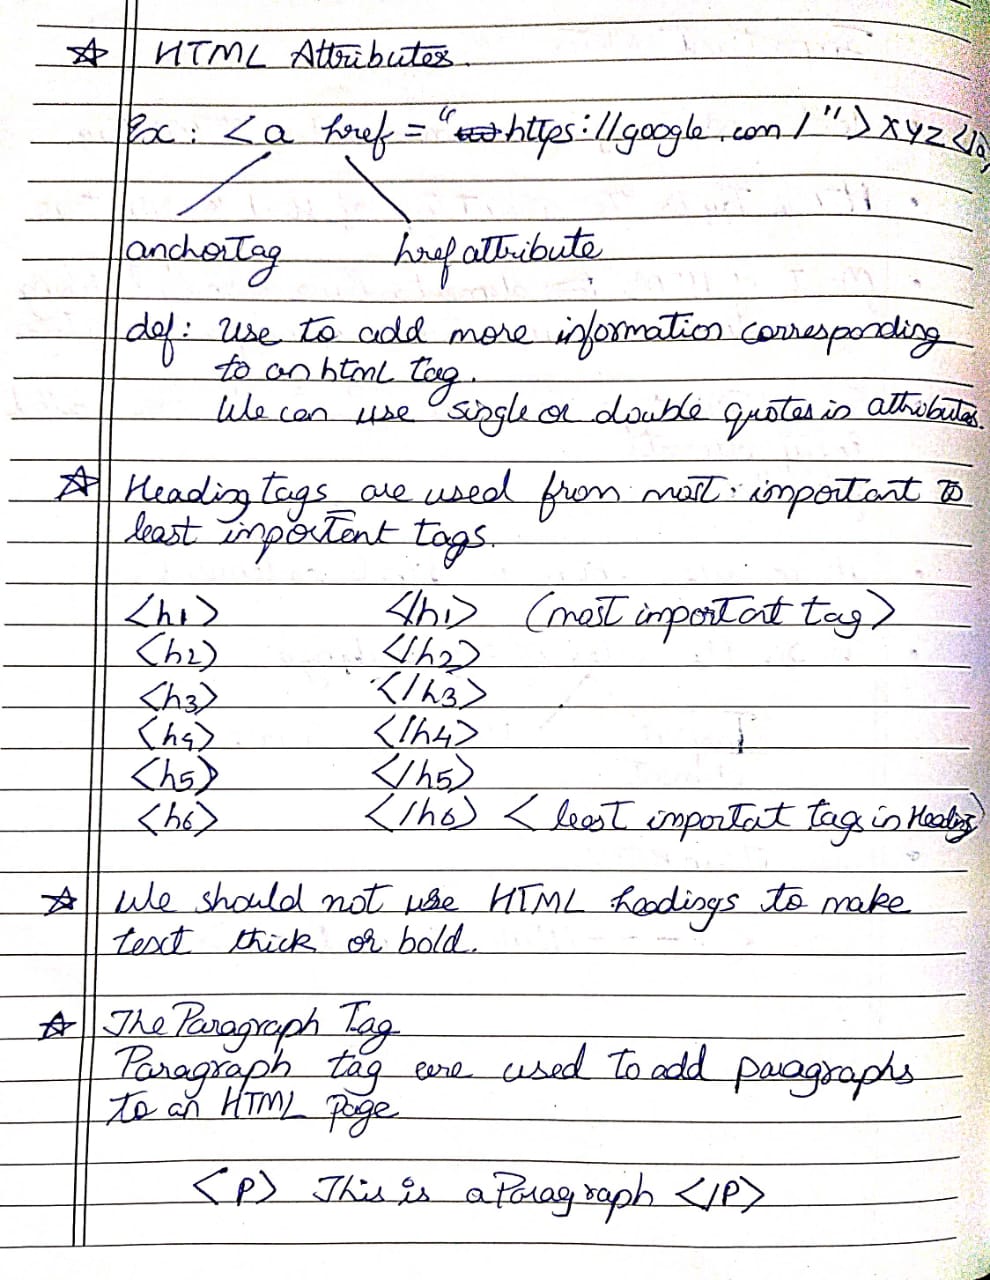 ☆ HTML Attributes.
Ex: <a href = "https://google.com/">XYZ</a>
anchorTag href attribute
def: Use to add more information corresponding
to an html tag.
We can use single or double quotes in attributes.
☆ Heading tags are used from most important to
least importent tags.
<h1> </h1> (most important tag>
<h2> </h2>
<h3> </h3>
<h4> </h4>
<h5> </h5>
<h6> </h6> < least importat tags in Heading>
☆ We should not use HTML headings to make
text thick or bold.
☆ The Paragraph Tag
Paragraph tag are used to add paragraphs
to an HTML Page
<P> This is a Paragraph </P>